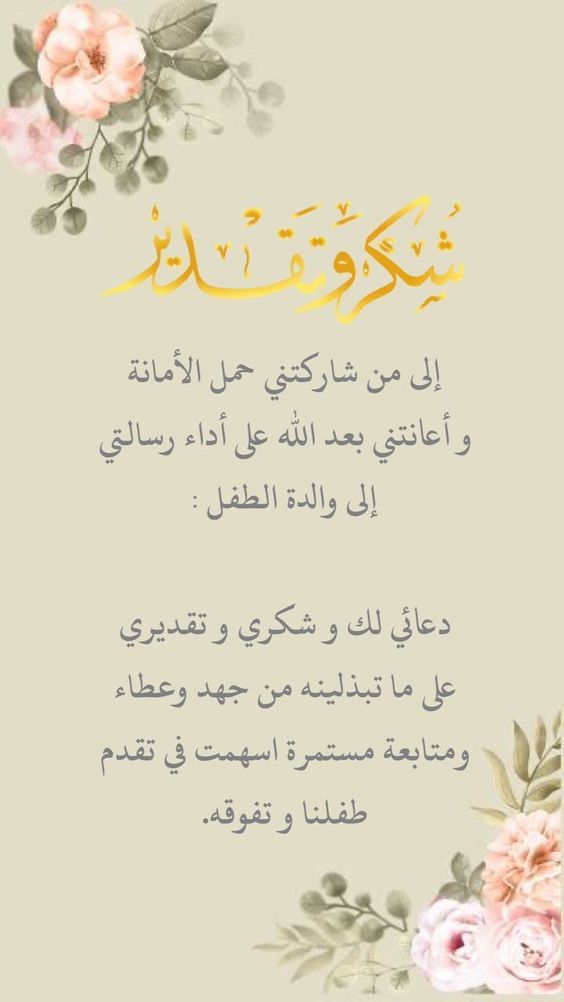 شُكْر وَتَقَدير
إلى من شاركتني حمل الأمانة
و أعانتني بعد الله على أداء رسالتي
إلى والدة الطفل :
دعائي لك و شكري و تقديري
على ما تبذلينه من جهد وعطاء
ومتابعة مستمرة اسهمت في تقدم
طفلنا و تفوقه.